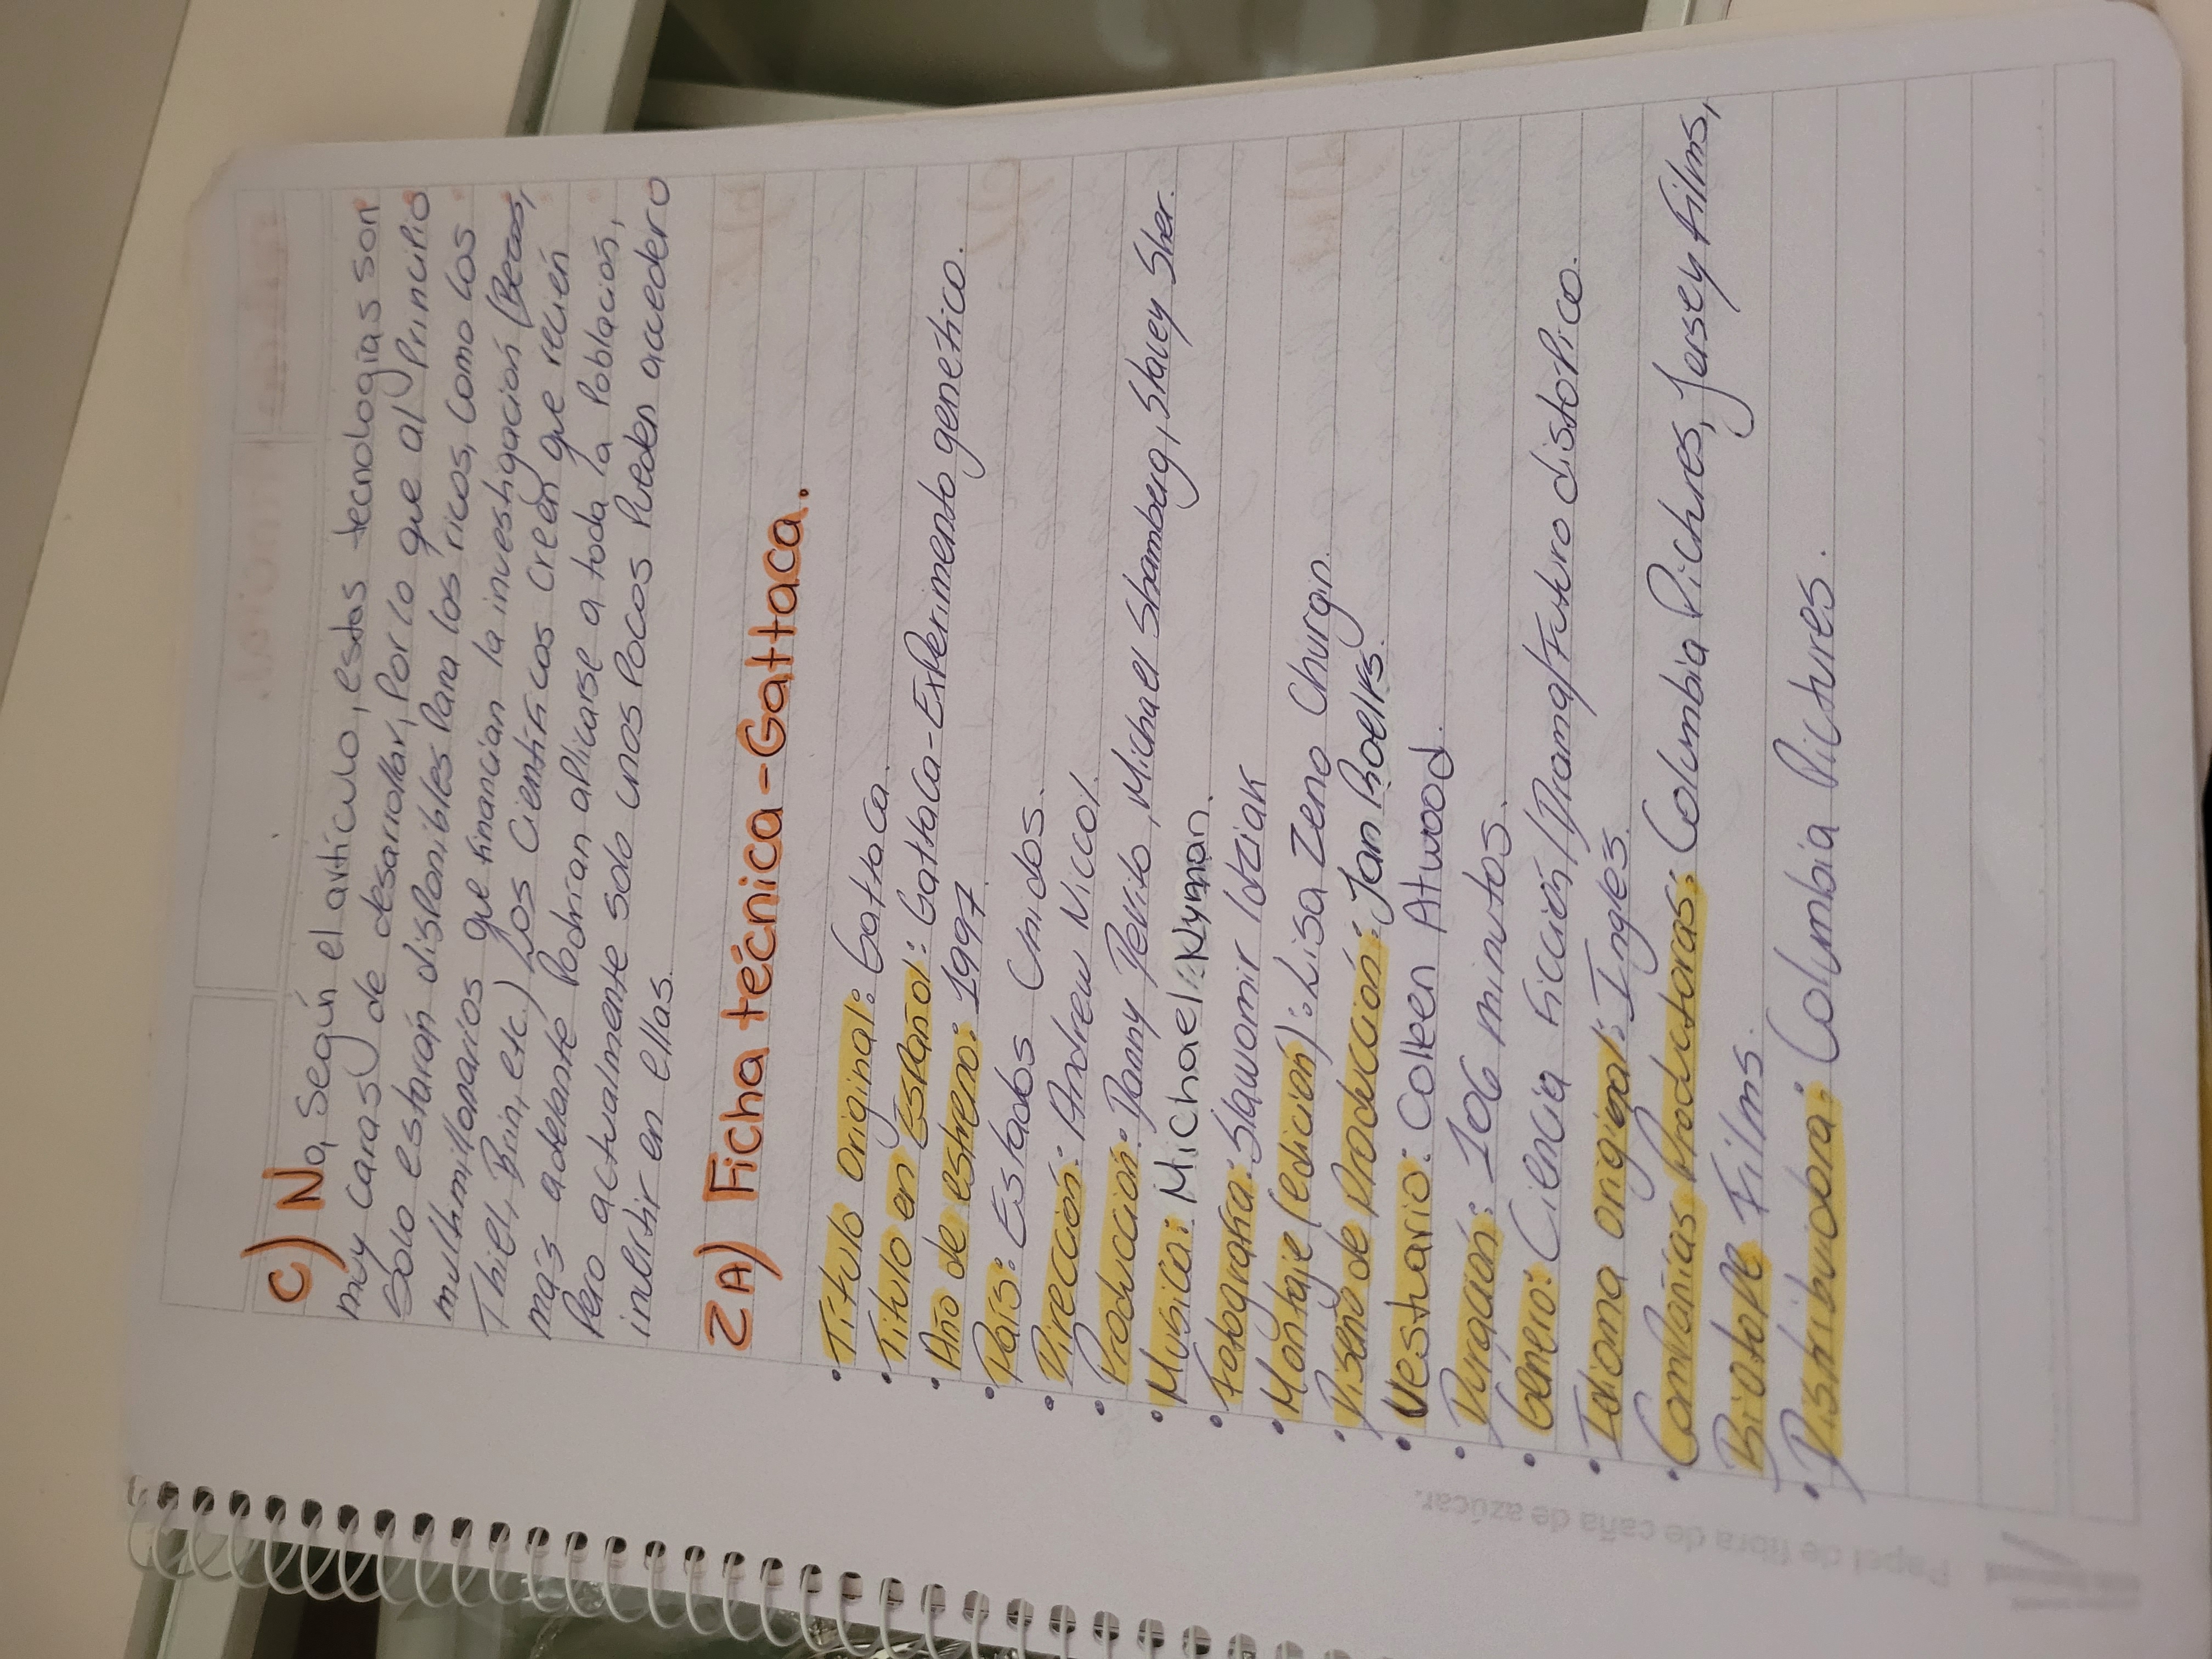 C) No, según el artículo, estas tecnologías son
muy caras de desarrollar, Por lo que al Principio
Solo estarán disponibles Para los ricos, como los
multimillonarios que financian la investigación (Bezos,
Thiel, Brin, etc.) Los Científicos creen que recién
más adelante Podrían aplicarse a toda la Población,
Pero actualmente solo unos Pocos Pueden accedero
invertir en ellas.
2A) Ficha técnica-Gattaca.
• Título original: Gattaca.
• Título en Español: Gattaca-Experimento genético.
• Año de estreno: 1997.
• País: Estados Unidos.
• Dirección: Andrew Niccol.
• Producción: Danny Devito, Michael Shamberg, Stacey Sher.
• Musica: Michael Nyman.
• Fotografía: Slawomir Idziak
• Montaje (edición): Lisa Zeno Churgin.
• Diseño de Producción: Jan Roelfs.
• Vestuario: Colleen Atwood.
• Duración: 106 minutos.
• Género: Ciencia ficción/Drama/Futuro distoPico.
• Idioma original: Ingles.
• Compañías Productoras: Columbia Pictures, Jersey Films,
Films.
• Distribuidora: Columbia Pictures.
Papel de fibra de caña de azúcar.